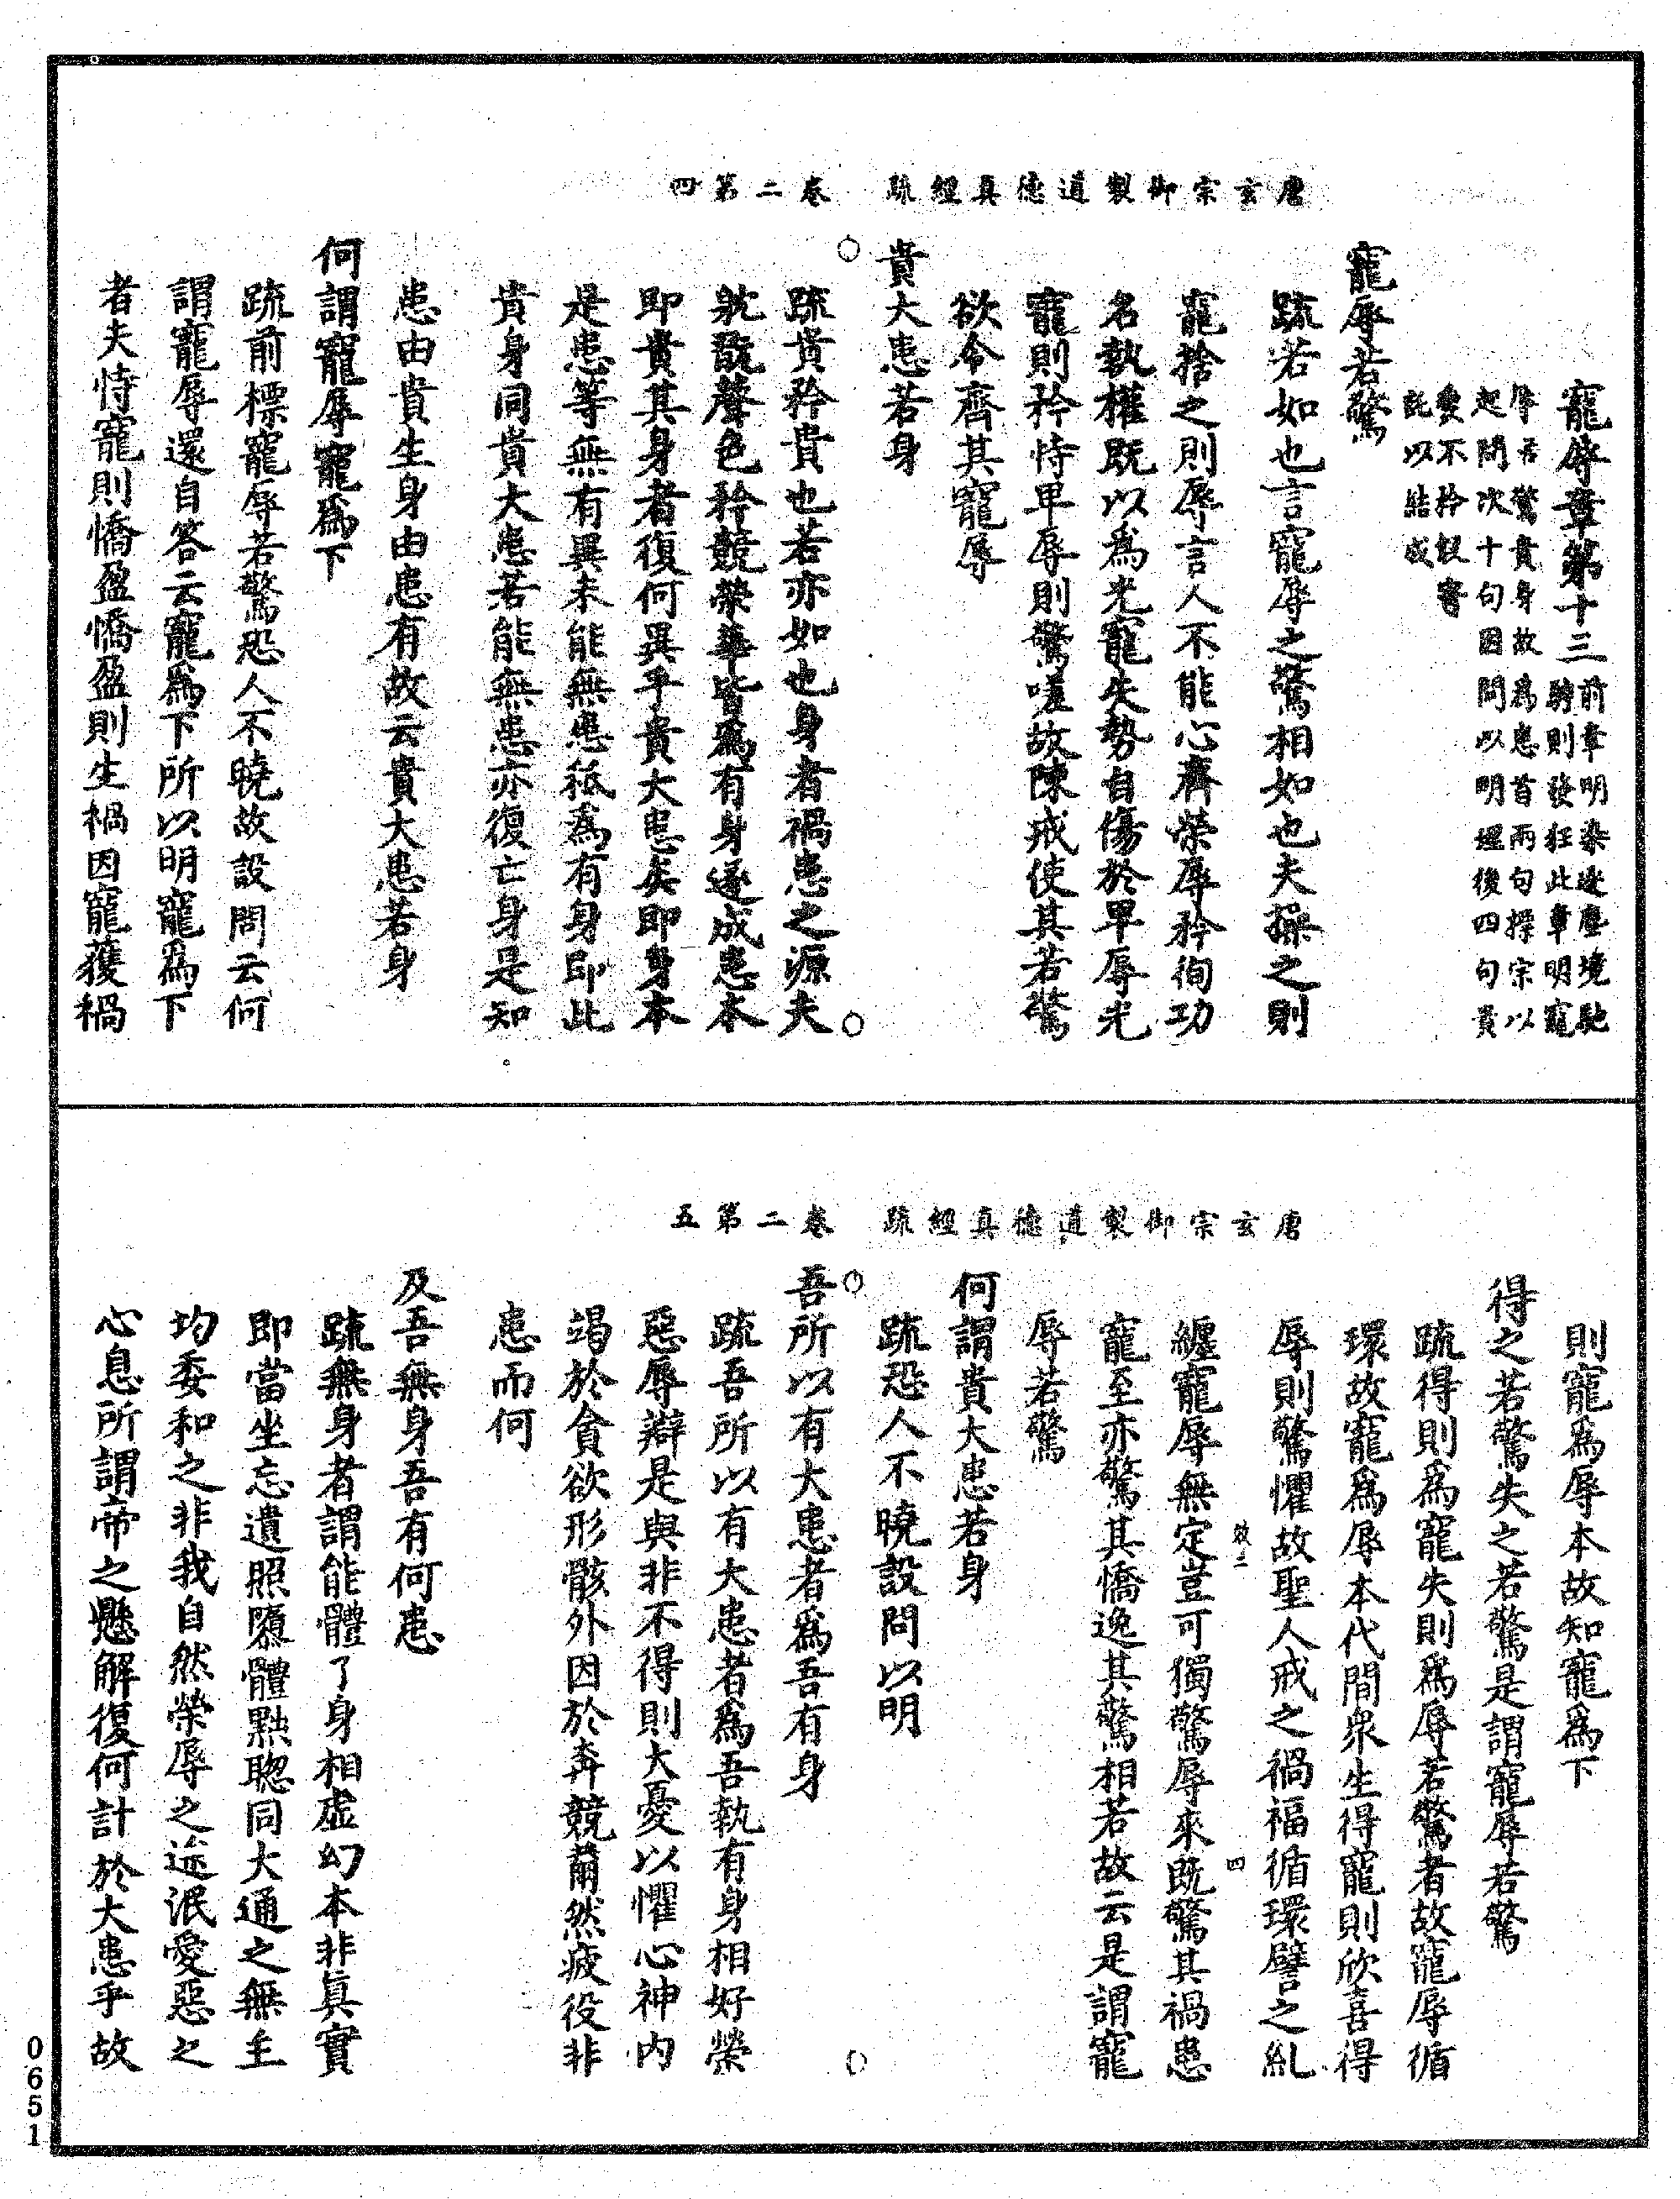 唐玄宗御製道德真經疏　卷二第四
寵辱章第十三
前章明染逐塵境馳
騁則發狂此章明寵
辱若驚貴身故爲患首兩句標宗以
起問次十句因問以明理後四句貴
愛不矜假寄
託以結成
寵辱若驚
疏若如也言寵辱之驚相如也夫操之則
寵捨之則辱言人不能心齊榮辱矜徇功
名執權既以爲光寵失勢自傷於卑辱光
寵則矜恃卑辱則驚嗟故陳戒使其若驚
欲令齊其寵辱
貴大患若身
疏貴矜貴也若亦如也身者禍患之源夫
躭翫聲色矜競榮華皆爲有身遂成患本
即貴其身者復何異乎貴大患矣即身本
是患等無有異未能無患祇爲有身即此
貴身同貴大患若能無患亦復亡身是知
患由貴生身由患有故云貴大患若身
何謂寵辱寵爲下
疏前標寵辱若驚恐人不曉故設問云何
謂寵辱還自答云寵爲下所以明寵爲下
者夫恃寵則憍盈憍盈則生禍因寵獲禍
唐玄宗御製道德真經疏　卷二第五
則寵爲辱本故知寵爲下
得之若驚失之若驚是謂寵辱若驚
疏得則爲寵失則爲辱若驚者故寵辱循
環故寵爲辱本代間衆生得寵則欣喜得
辱則驚懼故聖人戒之禍福循環譬之糺
纏寵辱無定豈可獨驚辱來既驚其禍患
寵至亦驚其憍逸其驚相若故云是謂寵
辱若驚
何謂貴大患若身
疏恐人不曉設問以明
吾所以有大患者爲吾有身
疏吾所以有大患者爲吾執有身相好榮
惡辱辯是與非不得則大憂以懼心神内
竭於貪欲形骸外因於奔競薾然疲役非
患而何
及吾無身吾有何患
疏無身者謂能體了身相虛幻本非眞實
即當坐忘遺照隳體黜聰同大通之無主
均委和之非我自然榮辱之途泯愛惡之
心息所謂帝之懸解復何計於大患乎故
0651